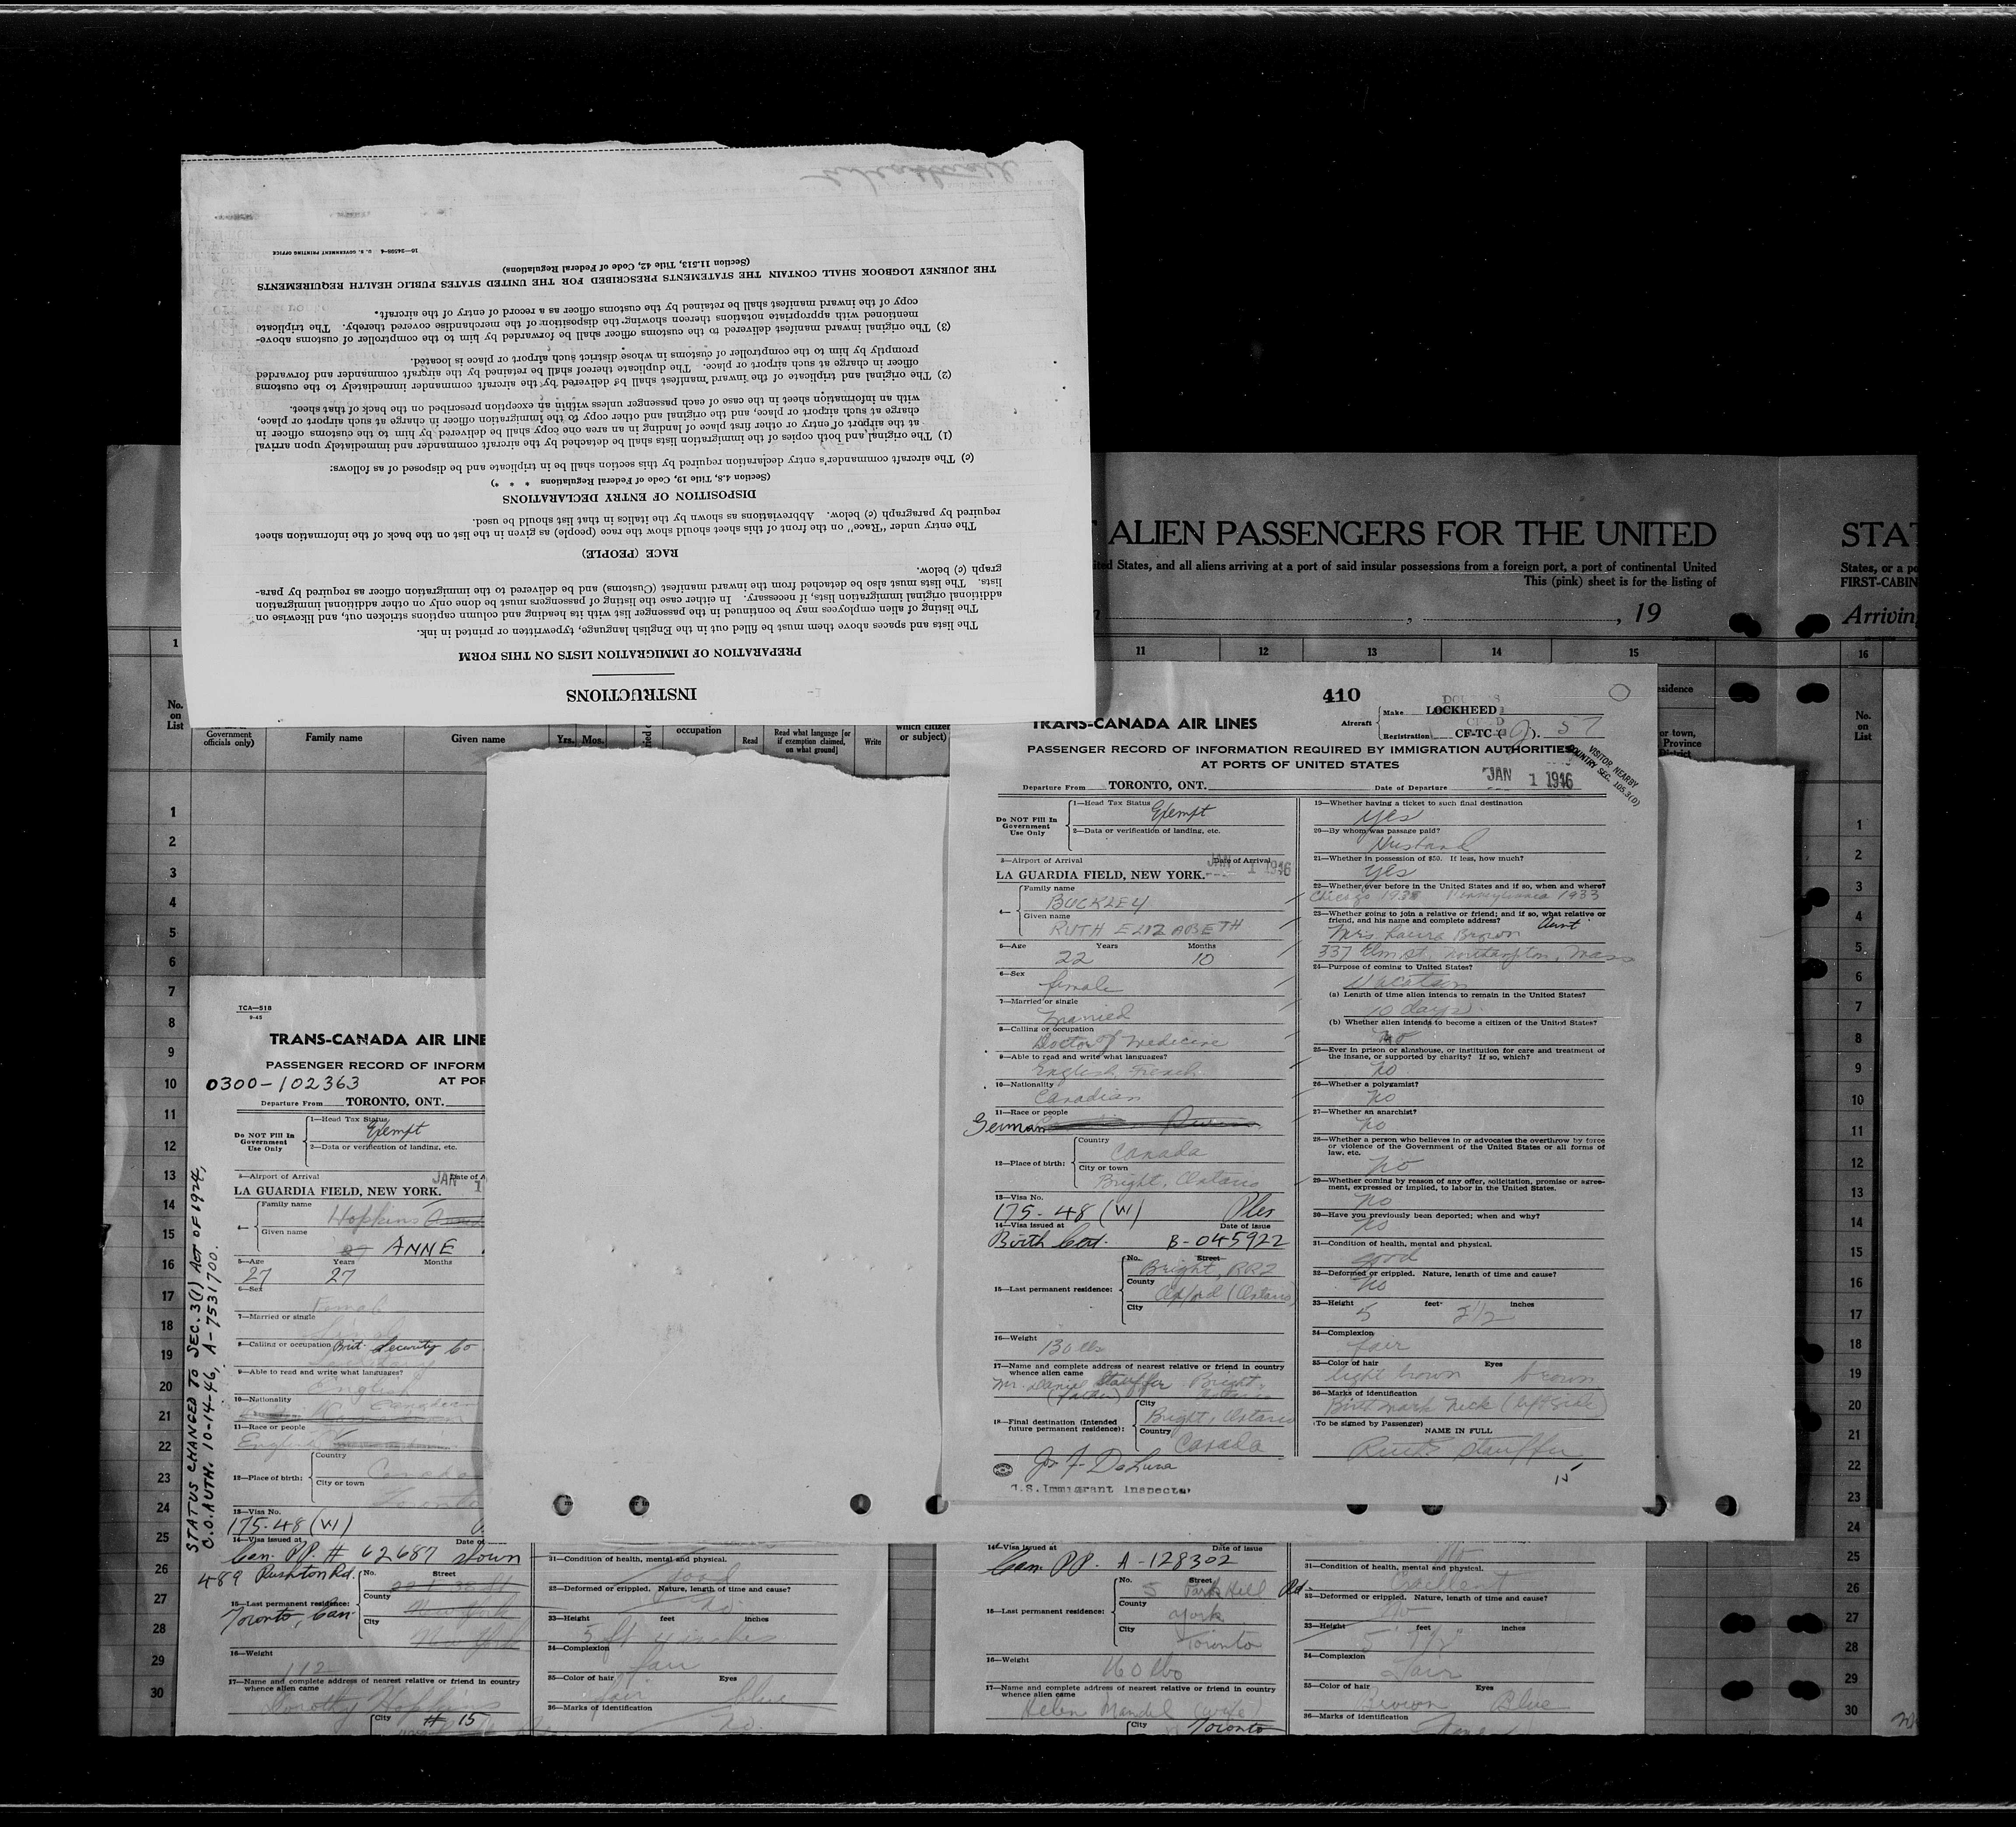 INSTRUCTIONS
PREPARATION OF IMMIGRATION LISTS ON THIS FORM
The lists and spaces above them must be filled out in the English language, typewritten or printed in ink.
The listing of alien employees may be continued in the passenger list with its heading and column captions stricken out, and likewise on
additional original immigration lists, if necessary. In either case the listing of passengers must be done only on other additional immigration
lists. The lists must also be detached from the inward manifest (Customs) and be delivered to the immigration officer as required by para-
graph (c) below.
RACE (PEOPLE)
The entry under "Race" on the front of this sheet should show the race (people) as given in the list on the back of the information sheet
required by paragraph (c) below. Abbreviations as shown by the italics in that list should be used.
DISPOSITION OF ENTRY DECLARATIONS
(Section 4.8, Title 19, Code of Federal Regulations * * *)
(c) The aircraft commander's entry declaration required by this section shall be in triplicate and be disposed of as follows:
(1) The original and both copies of the immigration lists shall be detached by the aircraft commander and immediately upon arrival
at the airport of entry or other first place of landing in an area one copy shall be delivered by him to the customs officer in
charge at such airport or place, and the original and other copy to the immigration officer in charge at such airport or place,
with an information sheet in the case of each passenger unless within an exception prescribed on the back of that sheet.
(2) The original and triplicate of the inward manifest shall be delivered by the aircraft commander immediately to the customs
officer in charge at such airport or place. The duplicate thereof shall be retained by the aircraft commander and forwarded
promptly by him to the comptroller of customs in whose district such airport or place is located.
(3) The original inward manifest delivered to the customs officer shall be forwarded by him to the comptroller of customs above-
mentioned with appropriate notations thereon showing the disposition of the merchandise covered thereby. The triplicate
copy of the inward manifest shall be retained by the customs officer as a record of entry of the aircraft.
THE JOURNEY LOGBOOK SHALL CONTAIN THE STATEMENTS PRESCRIBED FOR THE UNITED STATES PUBLIC HEALTH REQUIREMENTS
(Section 11.513, Title 42, Code of Federal Regulations)
16—24598-4 U. S. GOVERNMENT PRINTING OFFICE
ALIEN PASSENGERS FOR THE UNITED
STAT
ited States, and all aliens arriving at a port of said insular possessions from a foreign port, a port of continental United
States, or a po
This (pink) sheet is for the listing of
FIRST-CABIN
, 19
Arrivin
1 11 12 13 14 15 16
No. on List
Government officials only)
Family name
Given name
Yrs. Mos.
occupation
Read
Read what language [or if exemption claimed, on what ground]
Write
which citizen or subject)
No. on List
410
TRANS-CANADA AIR LINES
Aircraft Make LOCKHEED
Registration CF-TC 57
PASSENGER RECORD OF INFORMATION REQUIRED BY IMMIGRATION AUTHORITIES
AT PORTS OF UNITED STATES
VISITOR NEARBY
COUNTRY SEC. 105.3(D)
Departure From TORONTO, ONT.
Date of Departure JAN 1 1946
Do NOT Fill In Government Use Only
1—Head Tax Status Exempt
2—Data or verification of landing, etc.
3—Airport of Arrival
Date of Arrival
LA GUARDIA FIELD, NEW YORK. JAN 1 1946
4— Family name
BUCKLEY
Given name
RUTH ELIZABETH
5—Age Years Months
22 10
6—Sex
female
7—Married or single
Married
8—Calling or occupation
Doctor of Medicine
9—Able to read and write what languages?
English, French
10—Nationality
Canadian
11—Race or people
German
12—Place of birth: Country
Canada
City or town
Bright, Ontario
13—Visa No.
175-48 (W)
14—Visa issued at Date of issue
Birth Cert. B-045922
15—Last permanent residence: No. Street
Bright, RR2
County
Oxford (Ontario)
City
16—Weight
130 lbs
17—Name and complete address of nearest relative or friend in country
whence alien came
Mr. Daniel Stauffer Bright, Ontario
(father)
18—Final destination (Intended future permanent residence): City
Bright, Ontario
Country
Canada
U.S. Immigrant Inspector
19—Whether having a ticket to such final destination
yes
20—By whom was passage paid?
Husband
21—Whether in possession of $50. If less, how much?
yes
22—Whether ever before in the United States and if so, when and where?
Pennsylvania 1933
23—Whether going to join a relative or friend; and if so, what relative or
friend, and his name and complete address? Aunt
Mrs Laura Brown
337 Elm st, Northampton, Mass
24—Purpose of coming to United States?
Vacation
(a) Length of time alien intends to remain in the United States?
10 days
(b) Whether alien intends to become a citizen of the United States?
no
25—Ever in prison or almshouse, or institution for care and treatment of
the insane, or supported by charity? If so, which?
no
26—Whether a polygamist?
no
27—Whether an anarchist?
no
28—Whether a person who believes in or advocates the overthrow by force
or violence of the Government of the United States or all forms of
law, etc.
no
29—Whether coming by reason of any offer, solicitation, promise or agree-
ment, expressed or implied, to labor in the United States.
no
30—Have you previously been deported; when and why?
no
31—Condition of health, mental and physical.
good
32—Deformed or crippled. Nature, length of time and cause?
no
33—Height feet inches
5 2 1/2
34—Complexion
fair
35—Color of hair Eyes
light brown brown
36—Marks of identification
Birth mark neck (left side)
(To be signed by Passenger)
NAME IN FULL
Ruth Stauffer
15
TCA—518
9-45
TRANS-CANADA AIR LINE
PASSENGER RECORD OF INFORM
0300-102363
AT POR
Departure From TORONTO, ONT.
Do NOT Fill In Government Use Only
1—Head Tax Status
Exempt
2—Data or verification of landing, etc.
3—Airport of Arrival
JAN 1
LA GUARDIA FIELD, NEW YORK.
4— Family name
Hopkins
Given name
ANNE
5—Age Years Months
27 27
6—Sex
Female
7—Married or single
8—Calling or occupation Brit. Security Co
9—Able to read and write what languages?
English
10—Nationality
Canadian
11—Race or people
English
12—Place of birth: Country
Canada
City or town
Toronto
13—Visa No.
175-48 (W)
14—Visa issued at
Can. PP. # 62687 shown
489 Rushton Rd.
No. Street
15—Last permanent residence: County
Toronto, Can.
City
16—Weight
112
17—Name and complete address of nearest relative or friend in country
whence alien came
Dorothy Hopkins
City # 15
STATUS CHANGED TO SEC. 3(1) ACT OF 1924,
C.O. AUTH. 10-14-46, A-7531700.
31—Condition of health, mental and physical.
Good
32—Deformed or crippled. Nature, length of time and cause?
no
33—Height feet inches
34—Complexion
fair
35—Color of hair Eyes
fair blue
36—Marks of identification
no
14—Visa issued at Date of issue
Can. PP. A-128302
No. Street
5 Park Hill Rd.
15—Last permanent residence: County
York
City
Toronto
16—Weight
160 lbs
17—Name and complete address of nearest relative or friend in country
whence alien came
Helen Mandel (wife)
City Toronto
31—Condition of health, mental and physical.
Excellent
32—Deformed or crippled. Nature, length of time and cause?
No
33—Height feet inches
34—Complexion
Fair
35—Color of hair Eyes
Brown Blue
36—Marks of identification